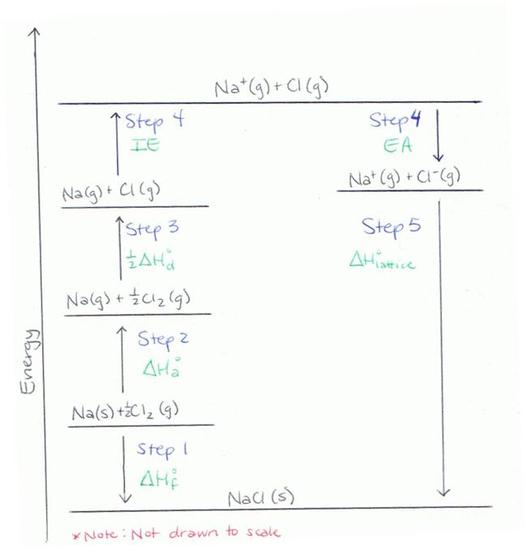 Na⁺(g) + Cl(g)
Step 4
IE
Step 4
EA
Na(g) + Cl(g)
Na⁺(g) + Cl⁻(g)
Step 3
½ΔH°d
Step 5
ΔH°lattice
Na(g) + ½Cl₂(g)
Energy
Step 2
ΔH°a
Na(s)+½Cl₂(g)
Step 1
ΔH°f
NaCl(s)
*Note: Not drawn to scale